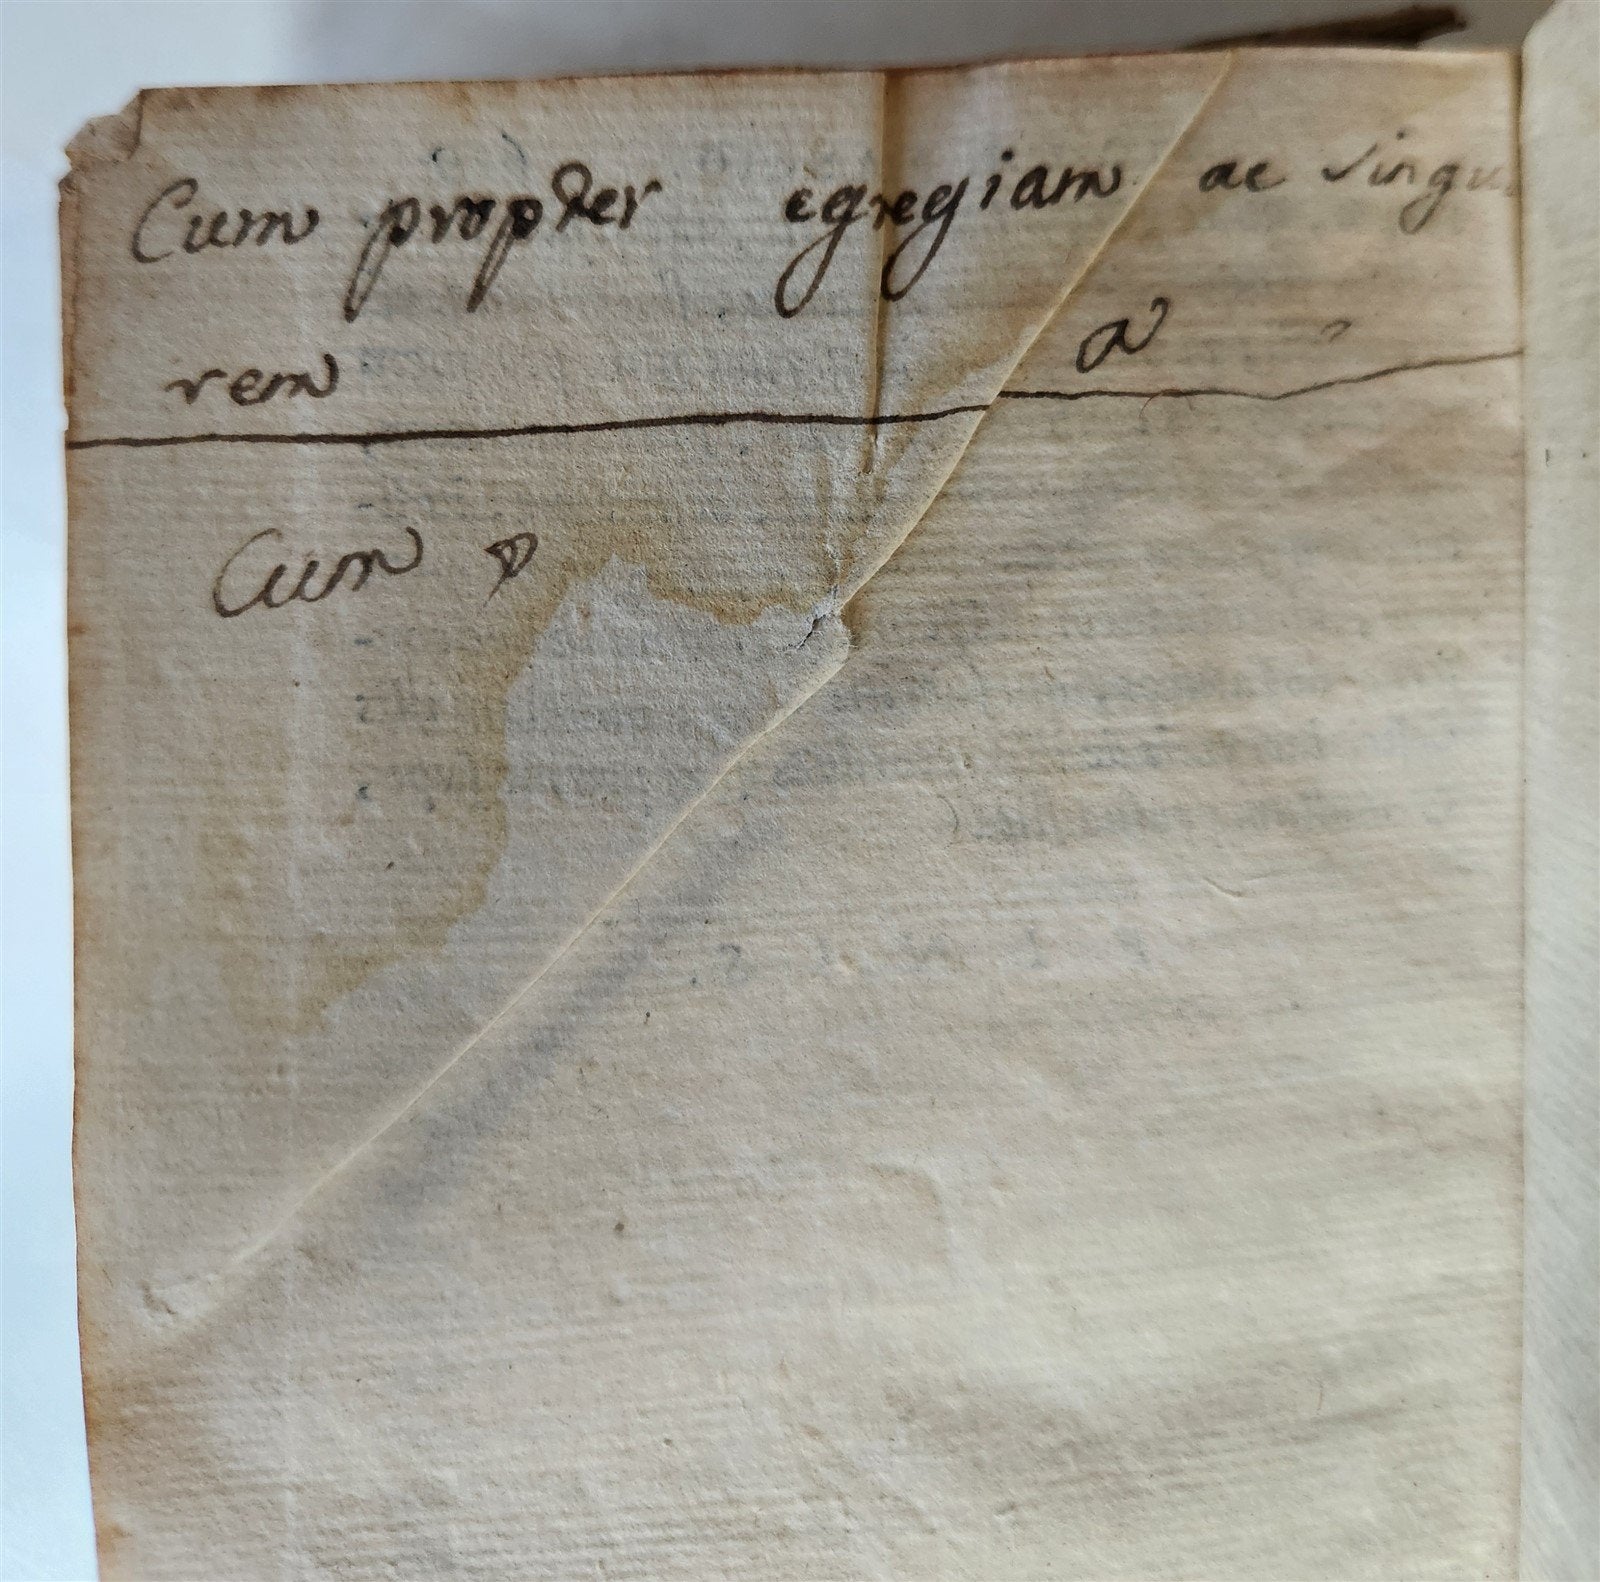 Cum propter egregiam ac singu
rem a
Cum p